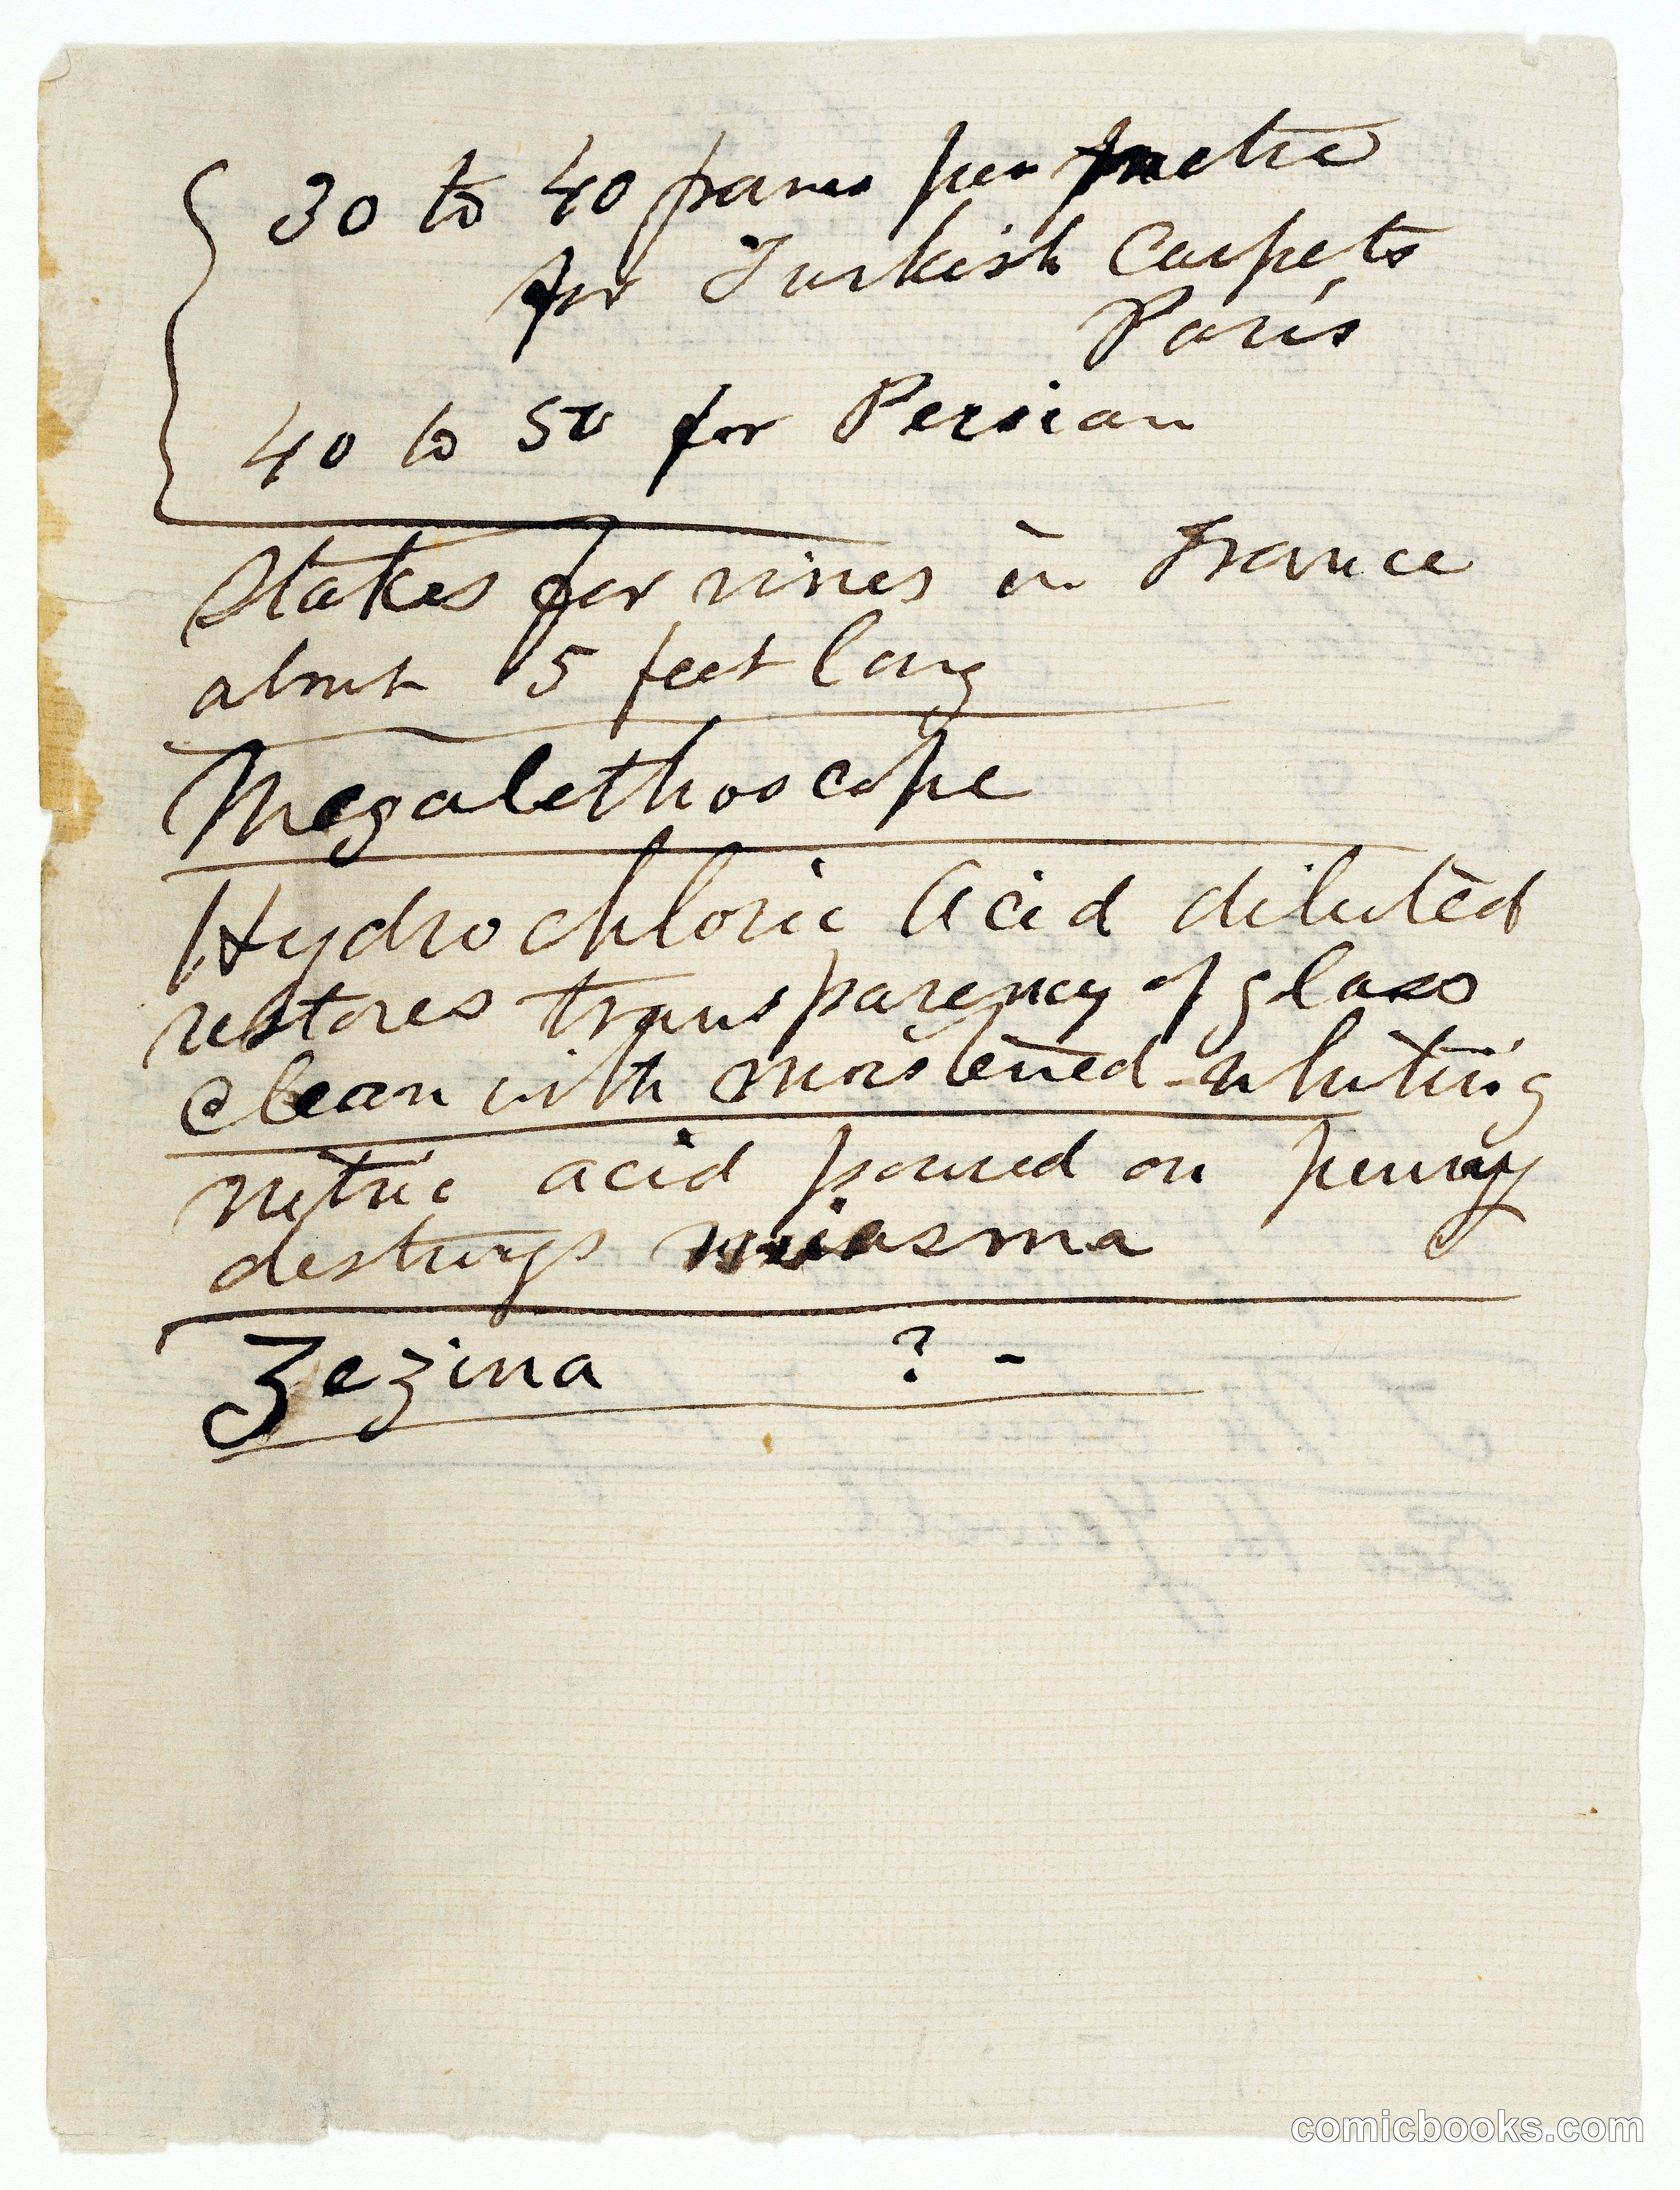 30 to 40 francs per metre
for Turkish Carpets
Paris
40 to 50 for Persian
Stakes for vines in France
about 5 feet long
Megalethoscope
Hydrochloric Acid diluted
restores transparency of glass
clean with moistened whiting
nitric acid poured on penny
destroys miasma
Zezina ? -
comicbooks.com